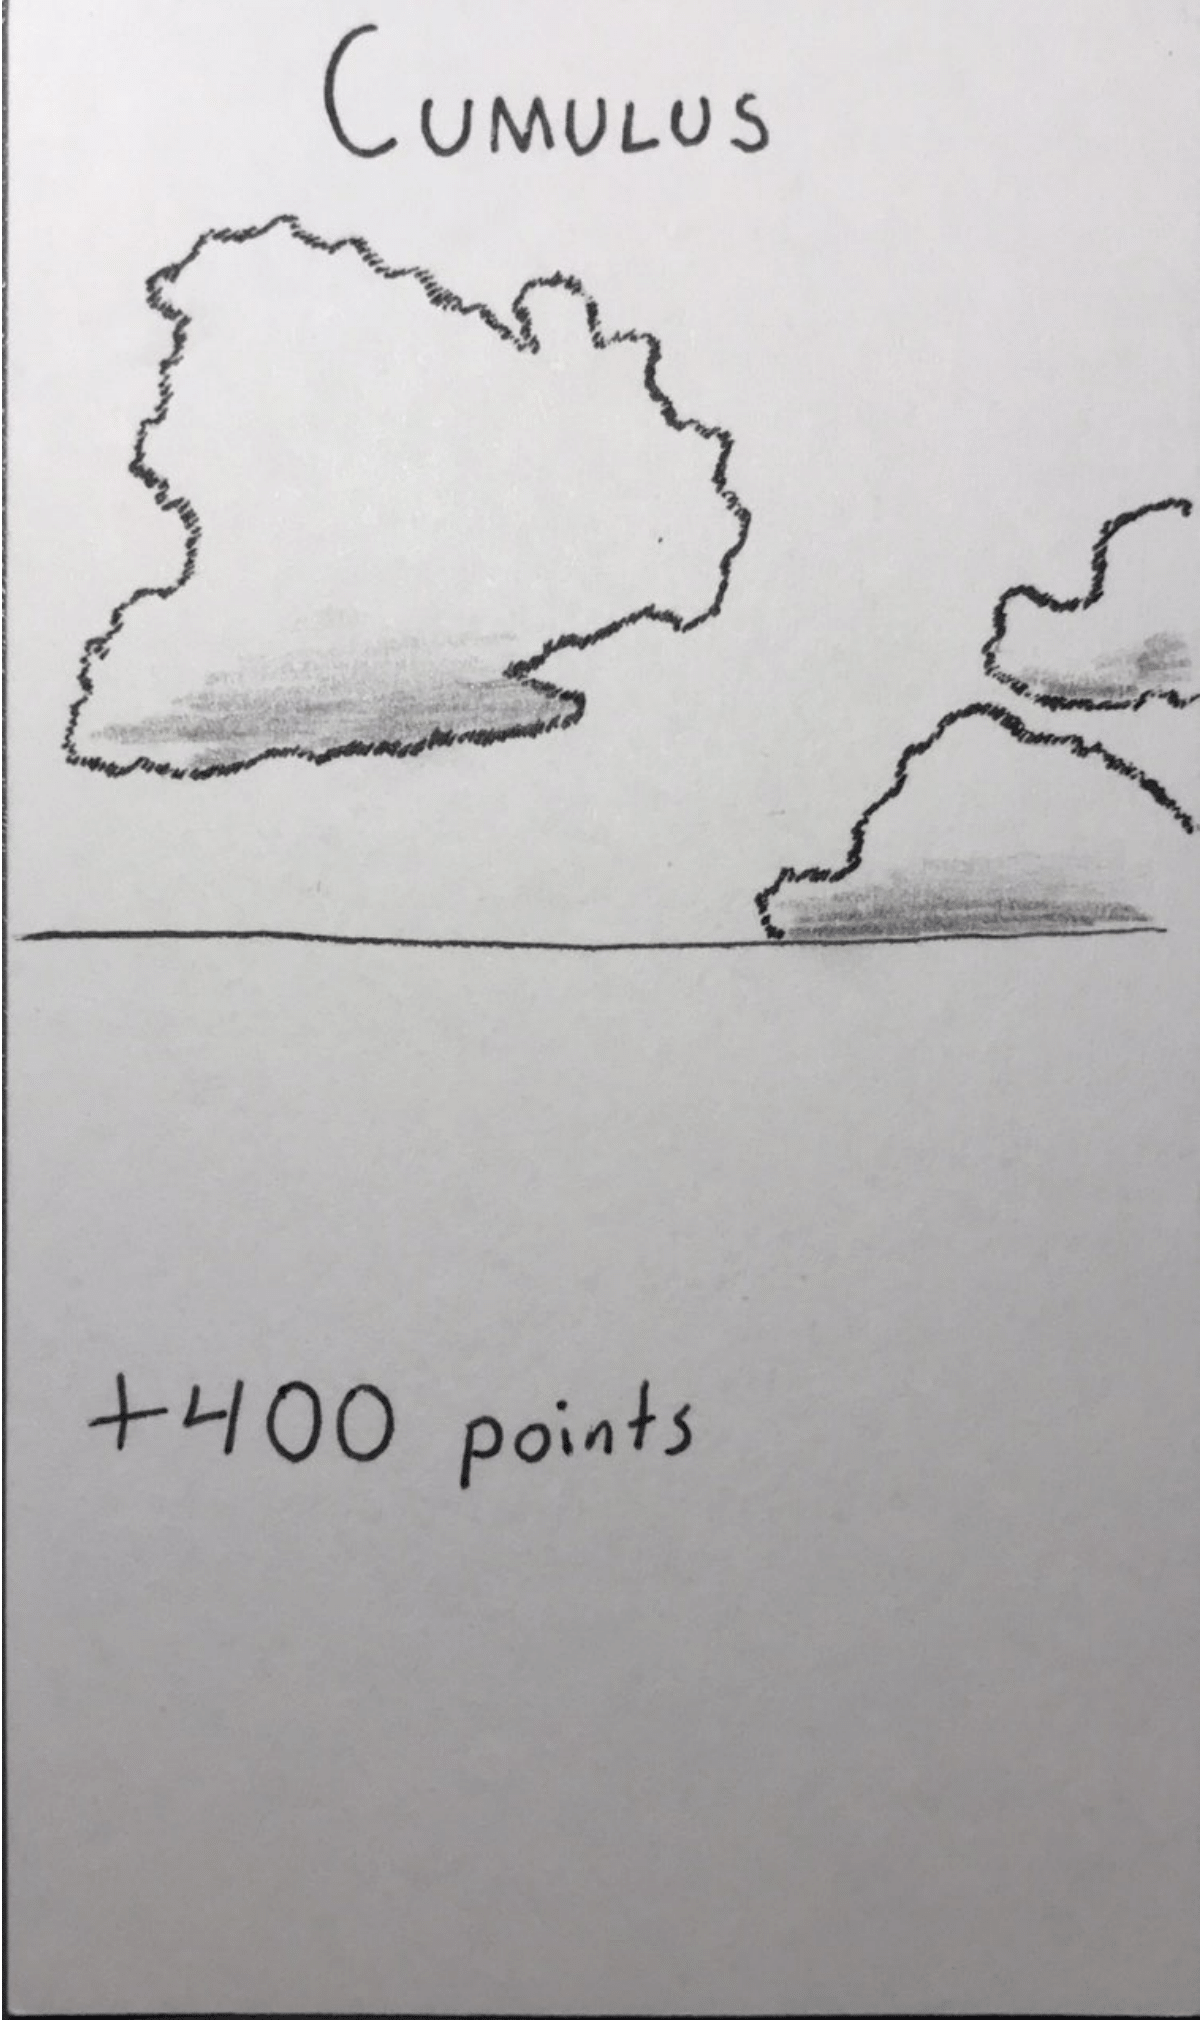 CUMULUS
+400 points